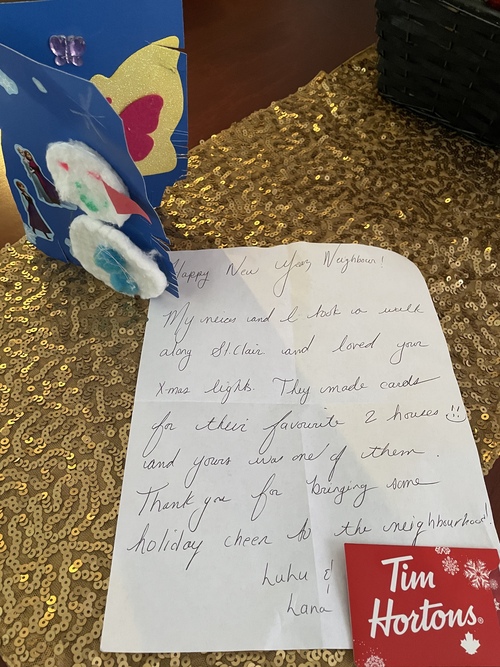 Happy New Year Neighbour!
My nieces and I took a walk
along St. Clair and loved your
X-mas lights. They made cards
for their favourite 2 houses
and yours was one of them.
Thank you for bringing some
holiday cheer to the neighbourhood!
Lulu &
Lana
Tim
Hortons